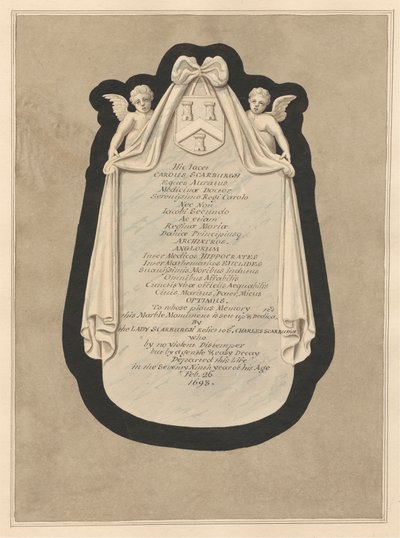 Hic Jacet
CAROLUS SCARBURGH
Eques Auratus
Medicinæ Doctor
Serenissimo Regi Carolo
Nec Non
Iacobi Secundo
Ac etiam
Reginæ Mariæ
Daniæ Principisq
ARCHIATROS.
ANGLORUM
Inter Medicos HIPPOCRATES
Inter Mathematicos EUCLIDES
Suavissimis Moribus Indutus
Omnibus Affabilis
Cunctis vitæ officiis Aequabilis
Civis, Maritus, Pater, Amicus
OPTIMUS.
To whose pious Memory
this Marble Monument is set up & Dedica
By
the LADY SCARBURGH Relict to CHARLES SCARBURGH
who
by no violent Distemper
but by a gentle & easy Decay
Departed this Life
in the Seventy Ninth year of his Age
Feb. 26
1693.